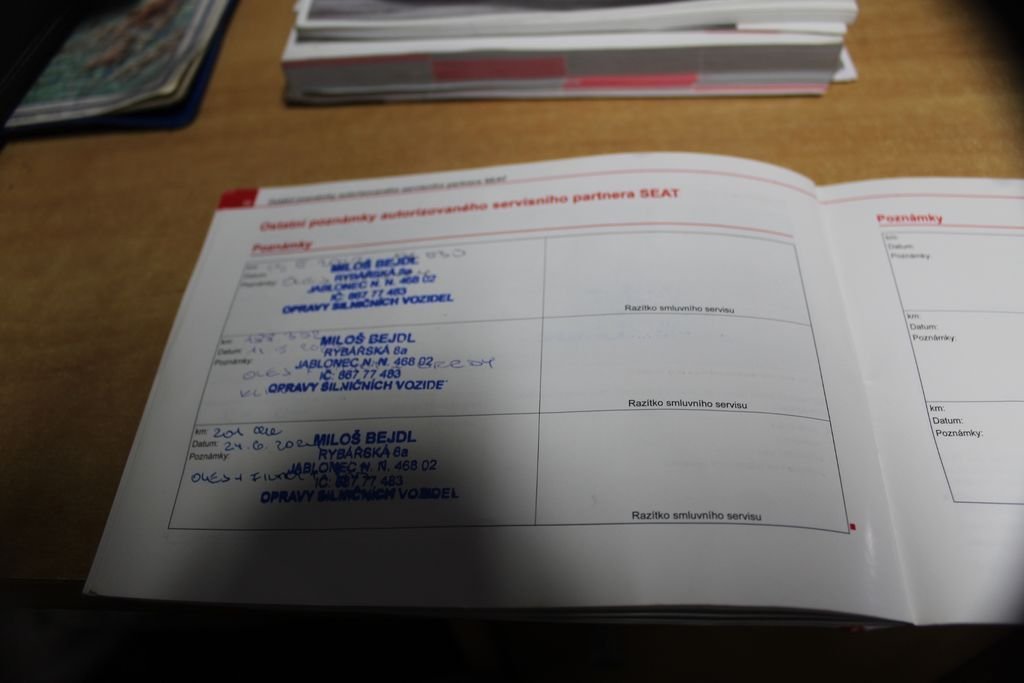 Ostatní poznámky autorizovaného servisního partnera SEAT
Ostatní poznámky autorizovaného servisního partnera SEAT
Poznámky
km:
Datum:
Poznámky:
MILOŠ BEJDL
RYBÁŘSKÁ 8a
JABLONEC N. N. 468 02
IČ: 867 77 483
OPRAVY SILNIČNÍCH VOZIDEL
Razítko smluvního servisu
km:
Datum:
Poznámky:
OLEJ
MILOŠ BEJDL
RYBÁŘSKÁ 8a
JABLONEC N. N. 468 02
IČ: 867 77 483
OPRAVY SILNIČNÍCH VOZIDE
Razítko smluvního servisu
km: 201
Datum: 24.6.
Poznámky:
OLEJ +
MILOŠ BEJDL
RYBÁŘSKÁ 8a
JABLONEC N. N. 468 02
IČ: 867 77 483
OPRAVY SILNIČNÍCH VOZIDEL
Razítko smluvního servisu
Poznámky
km:
Datum:
Poznámky:
km:
Datum:
Poznámky:
km:
Datum:
Poznámky: